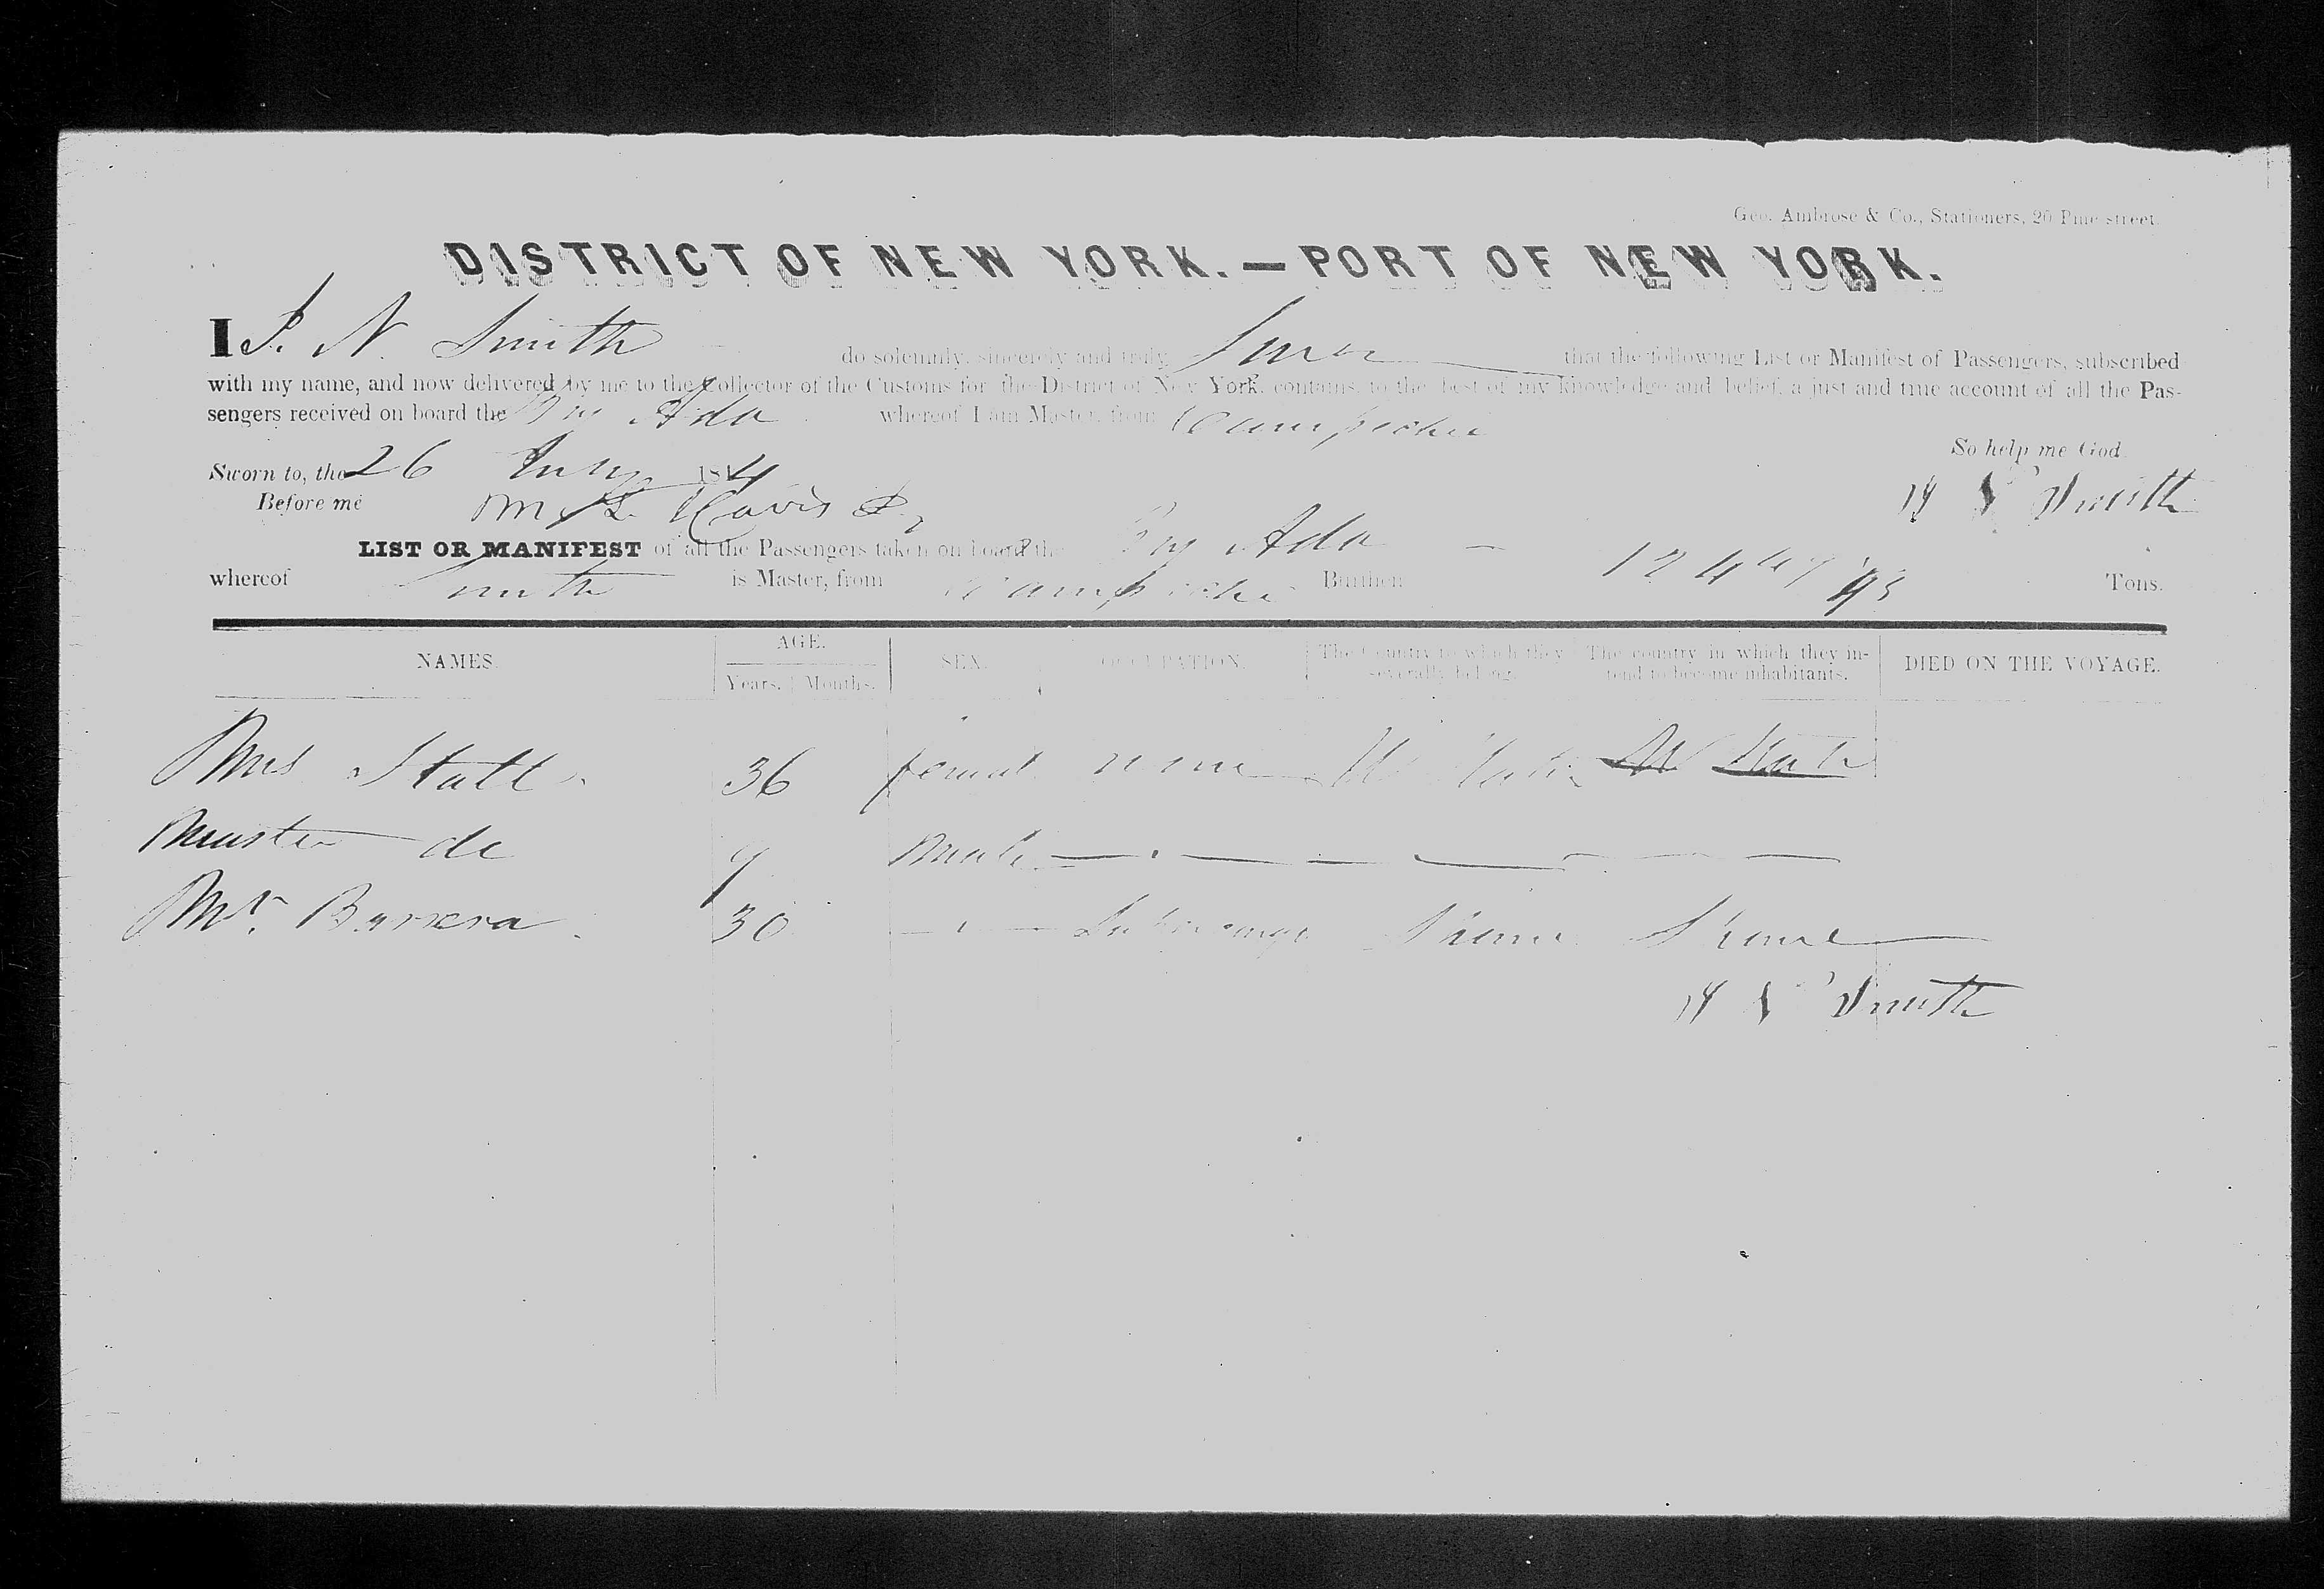 Geo. Ambrose & Co., Stationers, 20 Pine street.
DISTRICT OF NEW YORK.—PORT OF NEW YORK.
I J. N. Smith do solemnly, sincerely and truly Swear that the following List or Manifest of Passengers, subscribed
with my name, and now delivered by me to the Collector of the Customs for the District of New York, contains, to the best of my knowledge and belief, a just and true account of all the Pas-
sengers received on board the Brig Ada whereof I am Master, from Campeche
So help me God.
Sworn to, the 26 July 184
Before me Davis
N Smith
LIST OR MANIFEST of all the Passengers taken on board the Brig Ada
whereof Smith is Master, from Campeche Burthen 124 47/95 Tons.
NAMES. AGE. SEX. OCCUPATION. The Country to which they severally belong. The country in which they in- tend to become inhabitants. DIED ON THE VOYAGE.
Years. Months.
Mrs 36 female none U States U States
Master do 9 Male
Mr. Barrera 30
N Smith